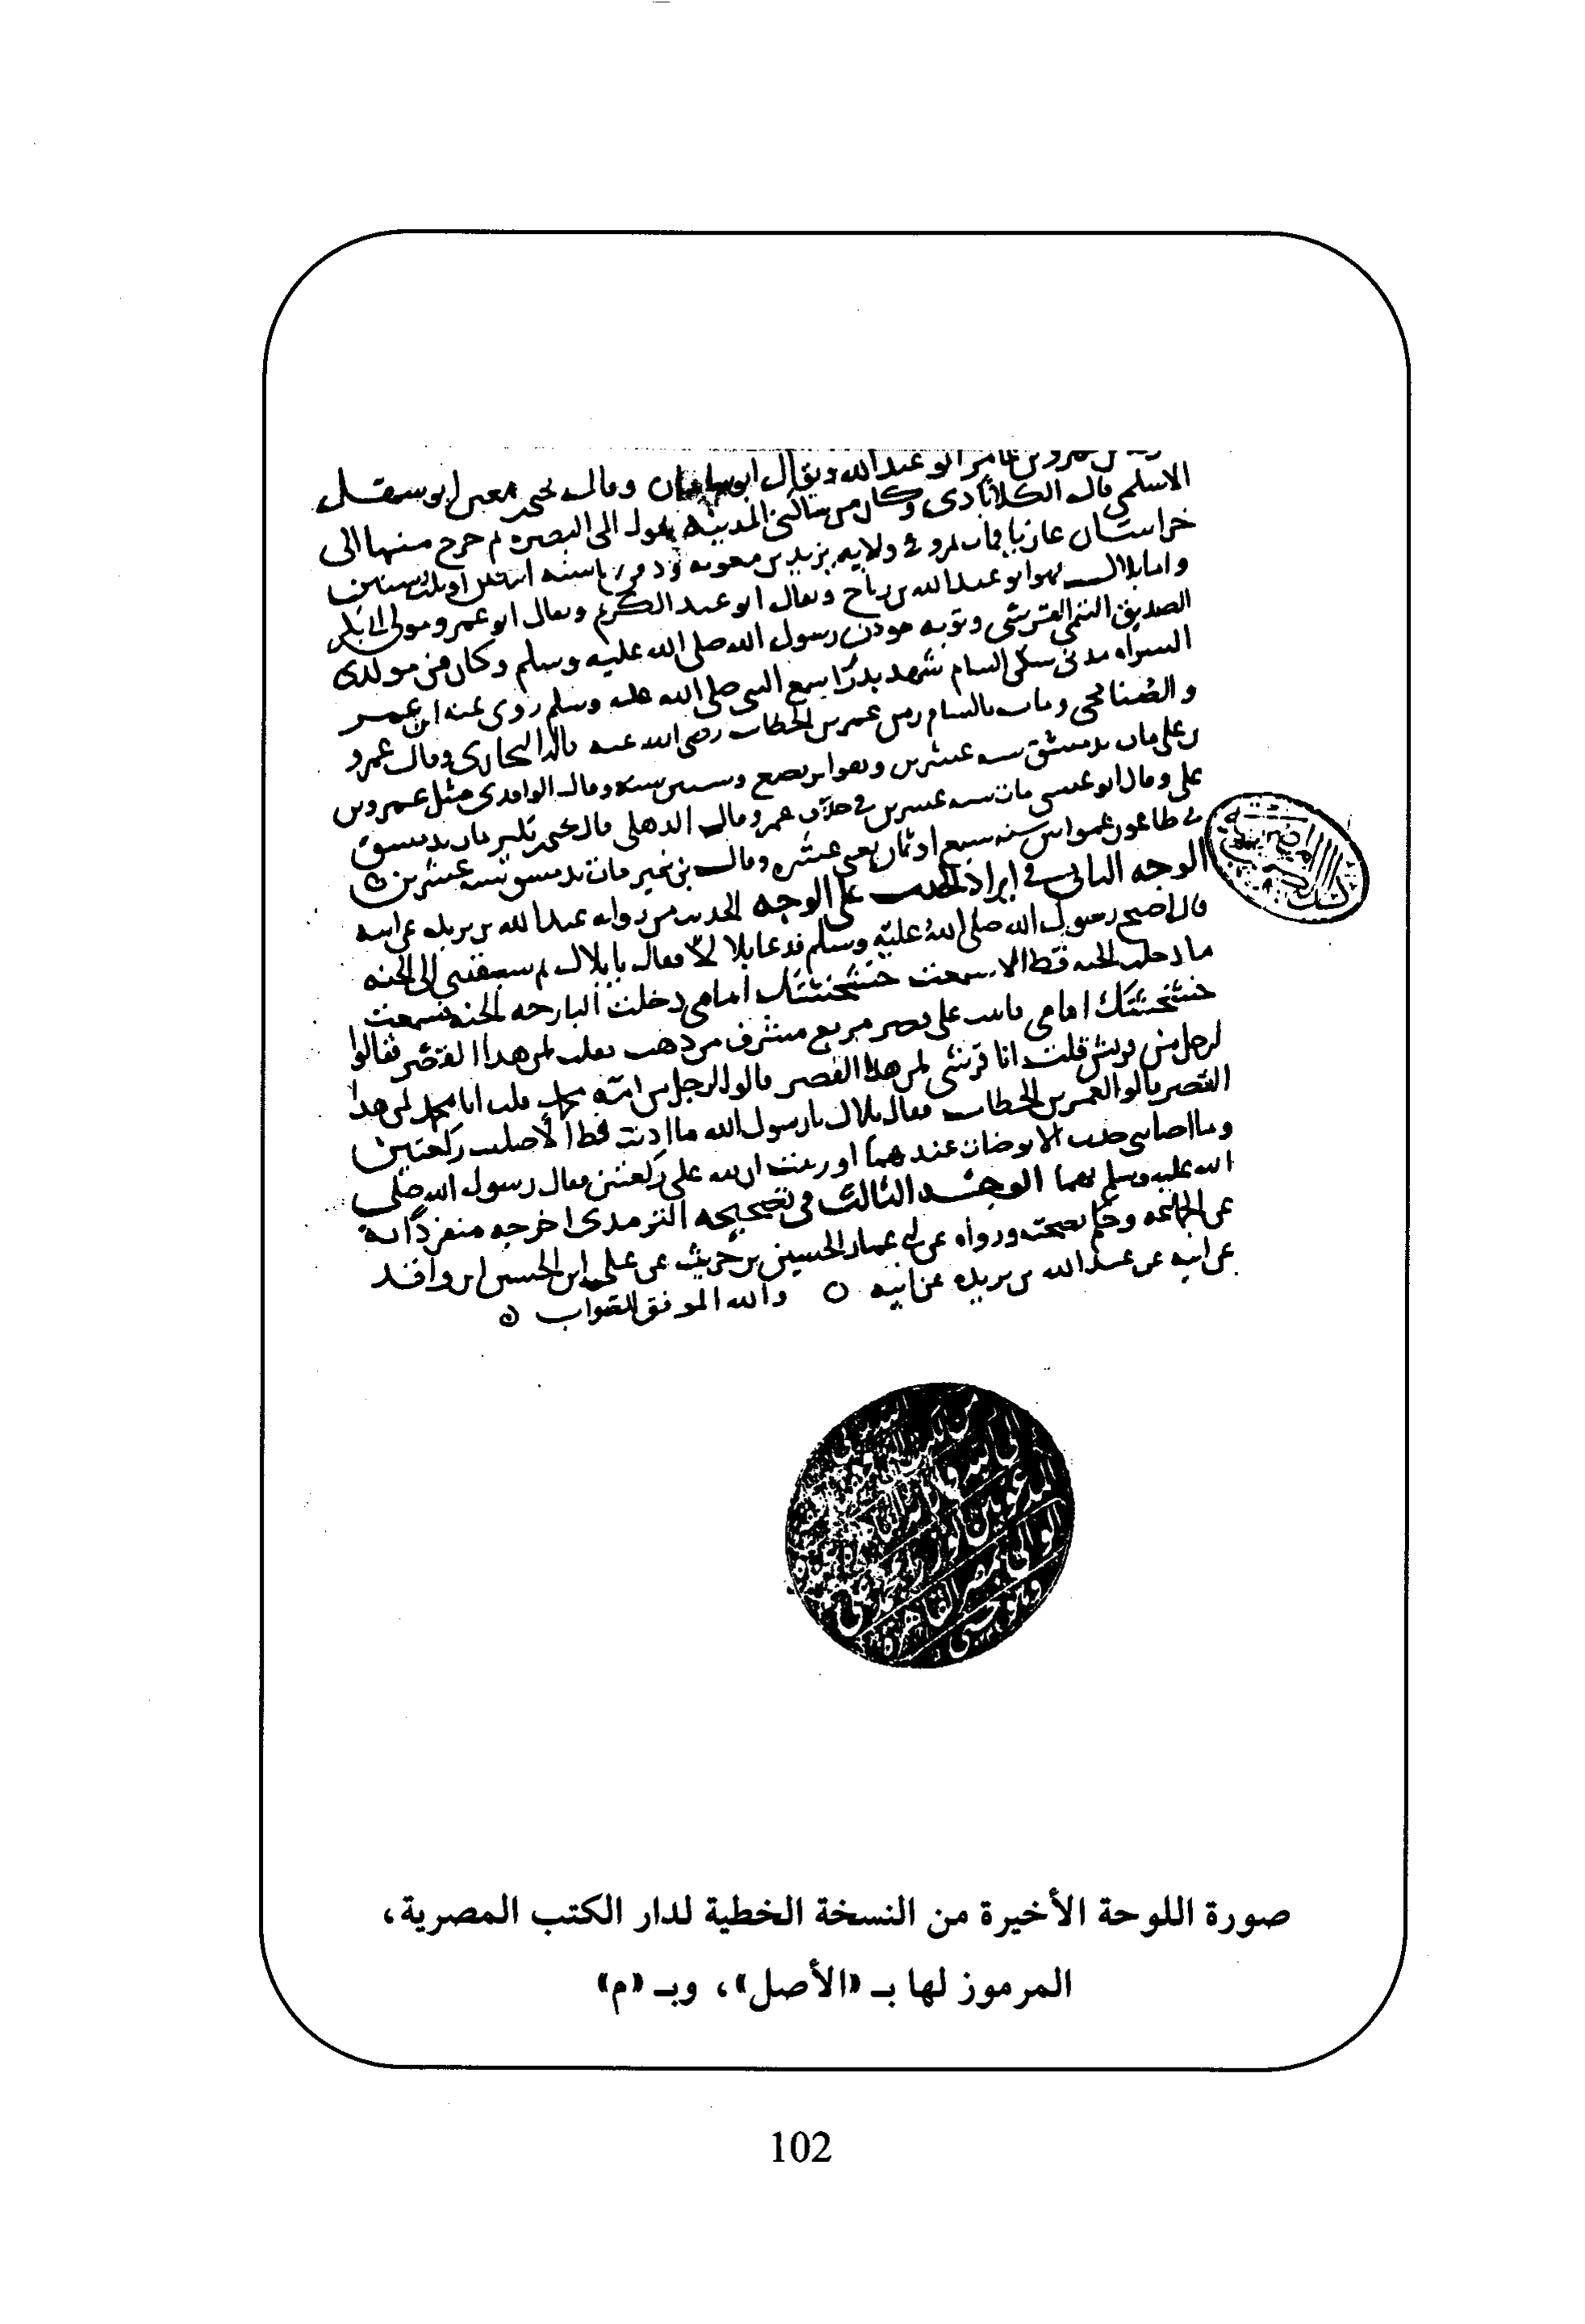 عبد الله ويقال ابو ساسان وقال يحيى معين ابو سهل
الاسلمي قال الكلاباذي وكان من ساكني المدينة تحول الى البصره ثم خرج منها الى
خراسان غازيا فمات بمرو في ولايه يزيد بن معويه
واما بلال فهو ابو عبد الله بن رباح ويقال ابو عبد الكريم ويقال ابو عمرو مولى ابي بكر
الصديق التيمي القرشي مؤذن رسول الله صلى الله عليه وسلم وكان من مولدي
السراه مدني سكن الشام شهد بدرا سمع النبي صلى الله عليه وسلم روى عنه ابن عمر
والصنابحي ومات بالشام زمن عمر بن الخطاب رضي الله عنه قاله البخاري وقال عمرو
بن علي مات بدمشق سنه عشرين وهو ابن بضع وستين سنه وقال الواقدي مثل عمرو بن
علي وقال ابو عيسى مات سنه عشرين في خلافه عمر وقال الذهلي قال يحيى بن بكير مات بدمشق
في طاعون عمواس سنه سبع او ثمان يعني عشره وقال ابن نمير مات بدمشق سنه عشرين
الوجه الثاني في ايراد الحديث على الوجه الحديث من روايه عبد الله بن بريده عن ابيه
قال اصبح رسول الله صلى الله عليه وسلم فدعا بلالا فقال يا بلال بم سبقتني الى الجنه
ما دخلت الجنه قط الا سمعت خشخشتك امامي دخلت البارحه الجنه فسمعت
خشخشتك امامي فاتيت على قصر مربع مشرف من ذهب فقلت لمن هذا القصر فقالوا
لرجل من قريش قلت انا قرشي لمن هذا القصر قالوا لرجل من امه محمد قلت انا محمد لمن هذا
القصر قالوا لعمر بن الخطاب فقال بلال يا رسول الله ما اذنت قط الا صليت ركعتين
وما اصابني حدث الا توضات عندها ورايت ان لله علي ركعتين فقال رسول الله صلى
الله عليه وسلم بهما الوجه الثالث في تصحيحه الترمذي اخرجه منفردا به
عن الجماعه وحكم بصحته ورواه عن ابي عمار الحسين بن حريث عن علي ابن الحسين ابن واقد
عن ابيه عن عبد الله بن بريده عن ابيه والله الموفق للصواب
صورة اللوحة الأخيرة من النسخة الخطية لدار الكتب المصرية،
المرموز لها بـ «الأصل»، وبـ «م»
102